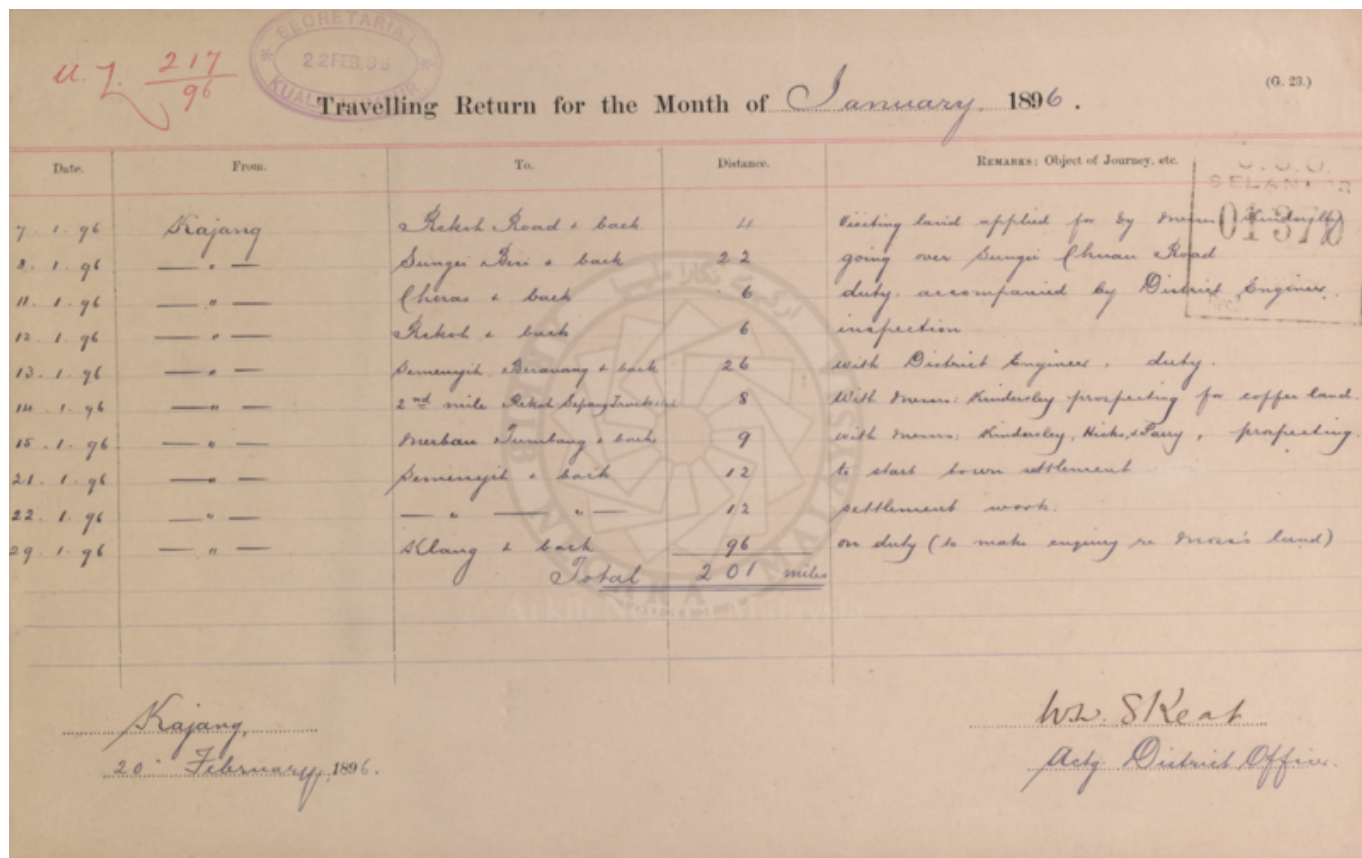 U. L. 217/96
SECRETARIAT
22 FEB. 96
KUALA LUMPUR
(G. 23.)
Travelling Return for the Month of January 1896.
Date. From. To. Distance. REMARKS: Object of Journey, etc.
SELANGOR
7. 1. 96 Kajang Rekoh Road & back 4 Visiting land applied for by Messrs Kindersley
8. 1. 96 — " — Sungei Besi & back 22 going over Sungei Chuau Road
11. 1. 96 — " — Cheras & back 6 duty. accompanied by District Engineer.
12. 1. 96 — " — Rekoh & back 6 inspection
13. 1. 96 — " — Semenyih, Beranang & back 26 with District Engineer, duty.
14. 1. 96 — " — 2nd mile Rekoh Sepang Trunk 8 With Messrs: Kindersley prospecting for coffee land.
15. 1. 96 — " — Merbau Tumbang & back 9 with Messrs: Kindersley, Hicks, & Parry, prospecting.
21. 1. 96 — " — Semenyih & back 12 to start town settlement
22. 1. 96 — " — — " — " — 12 settlement work.
29. 1. 96 — " — Klang & back 96 on duty (to make enquiry re land)
Total 201 miles
Arkib Negara Malaysia
Kajang,
20 February, 1896.
W. W. Skeat
Actg District Officer.